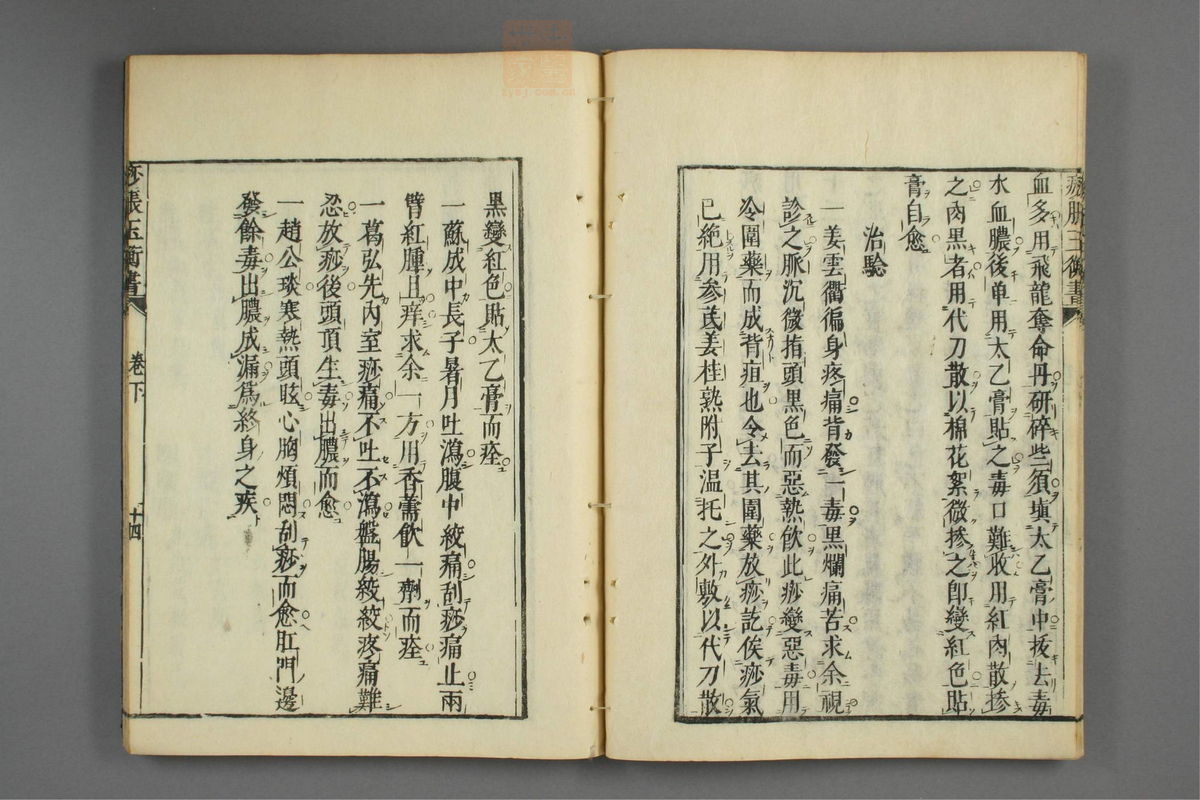 血多用飛龍奪命丹研碎些須塡太乙膏中拔去毒
水血膿後单用太乙膏貼之毒口難收用紅肉散摻
之肉黒者用代刀散以棉花絮微摻之卽變紅色貼
膏自愈
治驗
一姜雲衢徧身疼痛背發一毒黒爛痛苦求余視
診之脈沉微指頭黒色而惡熱飲此痧變惡毒用
冷圍藥而成背疽也令去其圍藥放痧訖俟痧氣
已絶用参芪姜桂熟附子温托之外敷以代刀散
黒變紅色貼太乙膏而痊
一蘇成中長子暑月吐瀉腹中絞痛刮痧痛止兩
臂紅腫且痒求余一方用香薷飲一劑而痊
一葛弘先內室痧痛不吐不瀉盤腸絞絞疼痛難
忍放痧後頭頂生毒出膿而愈
一趙公琰寒熱頭眩心胸煩悶刮痧而愈肛門邊
發餘毒出膿成漏爲終身之疾
痧脹玉衡書
卷下
十四